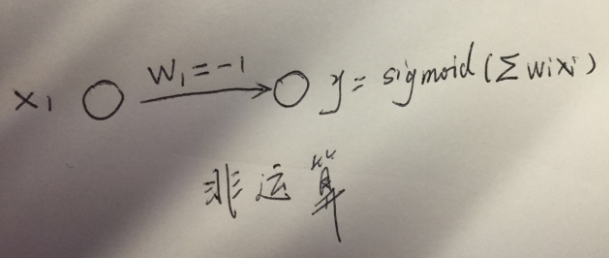 x1 W1=-1 y=sigmoid(Σwixi)
非运算